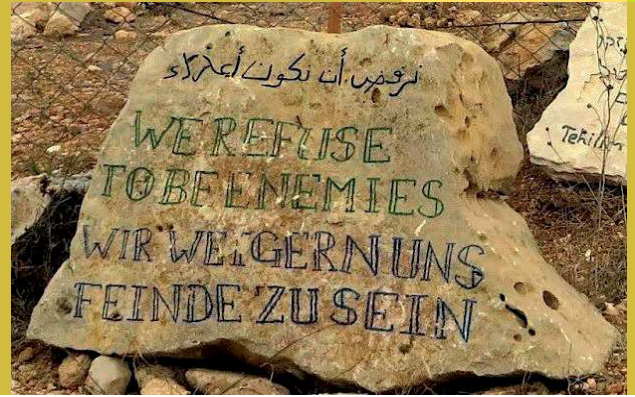 نرفض أن نكون أعداء
WE REFUSE
TO BE ENEMIES
WIR WEIGERN UNS
FEINDE ZU SEIN
Tehilim